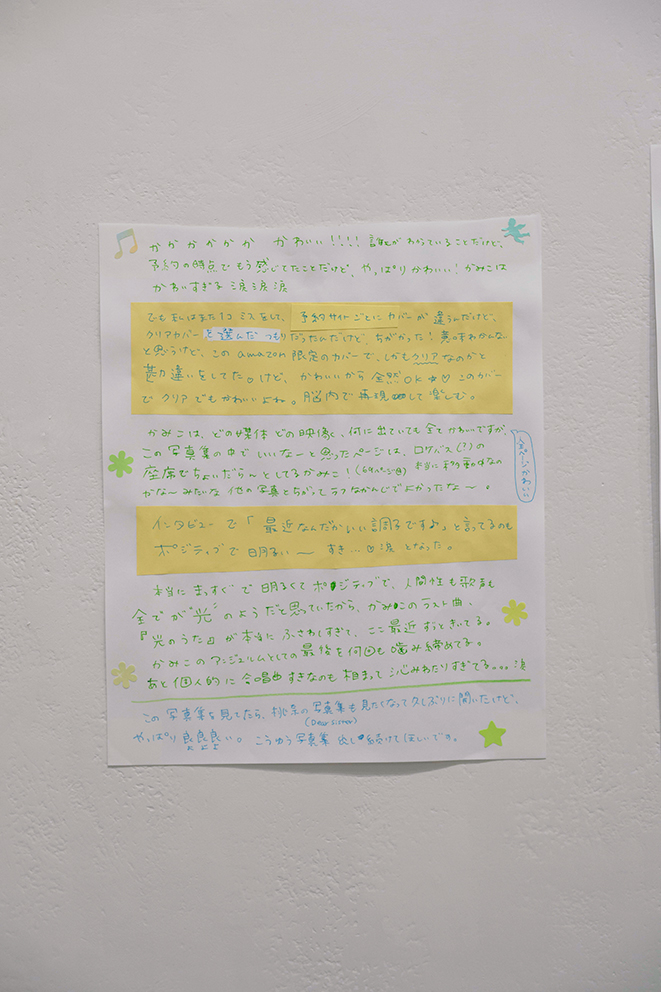 かかかかかか かわいい!!!! 誰もがわかっていることだけど、
予約の時点でもう感じてたことだけど、やっぱりかわいい!かみこは
かわいすぎる 涙涙涙
でも私はまた1コミスをして、予約サイトごとにカバーが違うんだけど、
クリアカバーを選んだつもりだったんだけど、ちがかった!意味わかんな
と思うけど、このamazon限定のカバーで、しかもクリアなのかと
勘違いをしてた。けど、かわいいから全然OK☆♡このカバー
でクリアでもかわいいよね。脳内で再現して楽しむ。
かみこは、どの媒体どの映像、何に出ていても全てかわいですが、
この写真集の中でいいなーと思ったページは、ロケバス(?)の
座席でちょいだら〜としてるかみこ!(64ページ目) 本当に移動中なの
かな〜みたいな 他の写真とちがってラフなかんじでよかったな〜。
全ページかわいい
インタビューで「最近なんだかいい調子です♪」と言ってるのも
ポジティブで明るい〜 すき...♡涙 となった。
本当にまっすぐで明るくてポジティブで、人間性も歌声も
全てが"光"のようだと思っていたから、かみこのラスト曲、
『光のうた』が本当にふさわしすぎて、ここ最近ずときいてる。
かみこのアンジュルムとしての最後を何回も噛み締めてる。
あと個人的に合唱曲すきなのも相まって沁みわたりすぎてる... 涙
この写真集を見てたら、桃奈の写真集も見たくなって久しぶりに開いたけど、
(Dear sister)
やっぱり良良良い。 こうゆう写真集 出し続けてほしいです。
よよよ